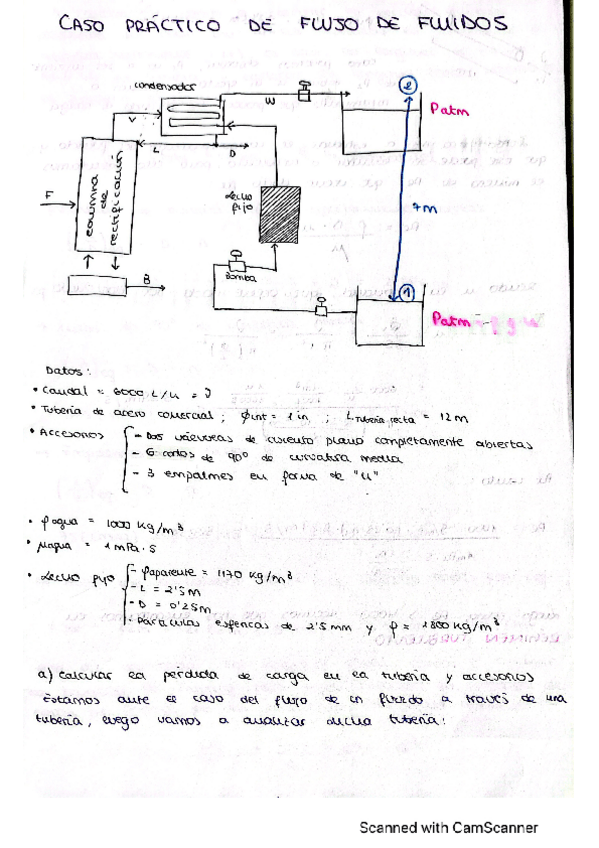 CASO PRÁCTICO DE FLUJO DE FLUIDOS
condensador
W
2
Patm
V
L
D
F
columna de rectificación
Lecho fijo
7m
Bomba
B
1
Patm
Datos:
• Caudal = 6000 L/h =
• Tubería de acero comercial ; φint = 1 in ; L tubería recta = 12 m
• Accesorios - Dos válvulas de asiento plano completamente abiertas
- 6 codos de 90º de curvatura media
- 3 empalmes en forma de "U"
• ρagua = 1000 kg/m³
• μagua = 1 mPa·s
• Lecho fijo - ρaparente = 1170 kg/m³
- L = 2'5m
- D = 0'25m
- Partículas esféricas de 2'5 mm y ρ = 1800 kg/m³
a) Calcular la pérdida de carga en la tubería y accesorios
Estamos ante el caso del flujo de un fluido a través de una
tubería, luego vamos a analizar dicha tubería:
Scanned with CamScanner